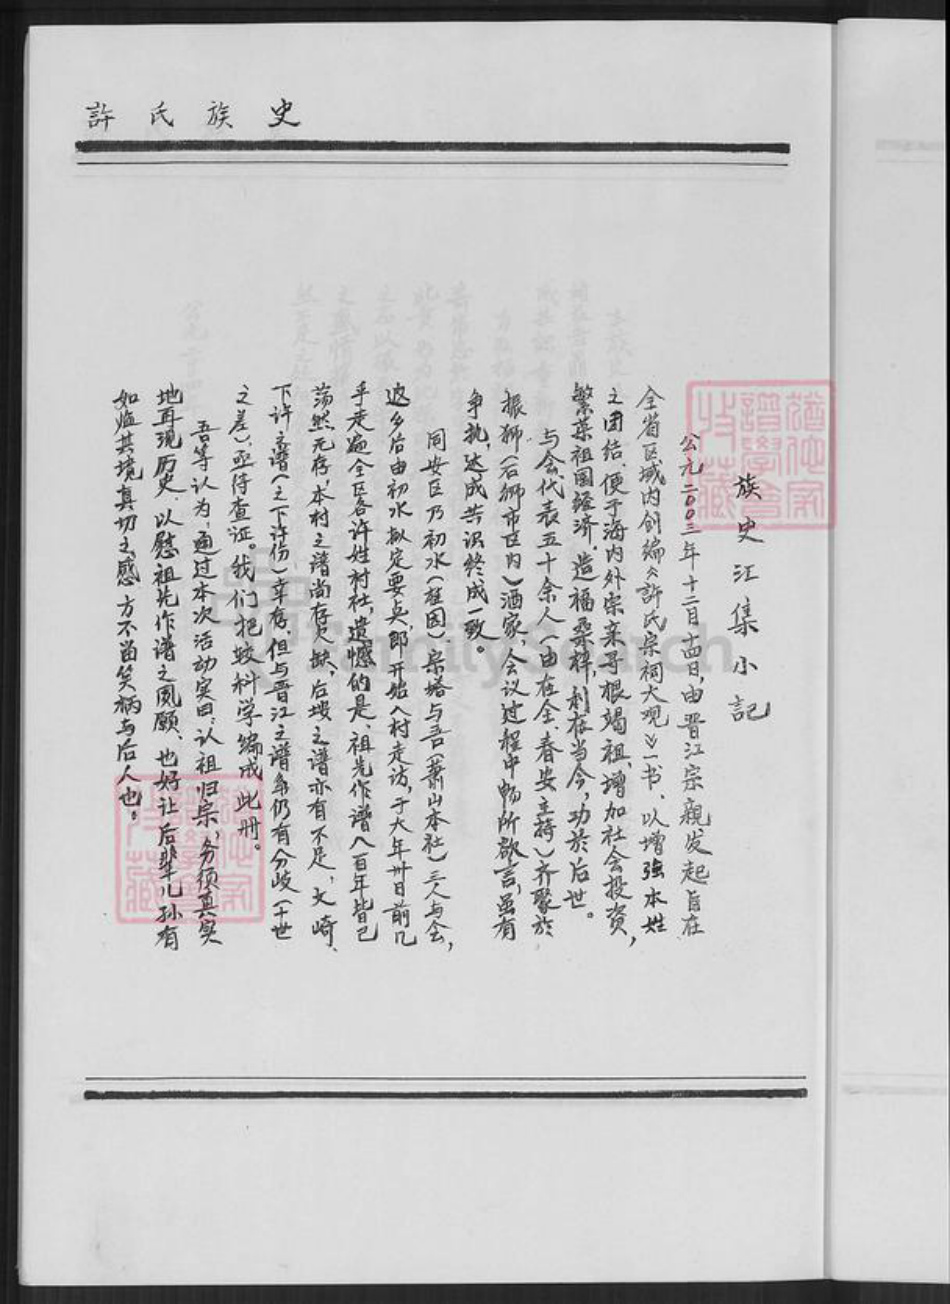 許氏族史
族史江集小記
公元二00三年十二月十四日,由晋江宗親发起旨在
全省区域内创编《許氏宗祠大观》一书、以增强本姓
之团结、便于海内外宗亲寻根竭祖,增加社会投资,
繁荣祖国经济、造福桑梓,利在当今,功於后世。
与会代表五十余人(由在全、春安主持)齐聚於
振狮(石狮市区内)酒家,会议过程中畅所欲言,虽有
争执,达成共识终成一致。
同安区乃初水(在园)宗塔与吾(蕭山本社)三人与会,
返乡后由初水拟定要点,即开始入村走访,于大年卅日前几
乎走遍全区各许姓村社,遗憾的是,祖先作谱八百年皆已
荡然无存,本村之谱尚存欠缺,后垵之谱亦有不足,大崎、
下许之谱(之下许份)幸存,但与晋江之谱系仍有分歧(十世
之差),亟待查证。我们把较科学编成此册。
吾等认为,通过本次活动实曰:认祖归宗,务须真实
地再现历史、以慰祖先作谱之夙願、也好让后辈儿孙有
如临其境真切之感,方不留笑柄与后人也。
譜學會
收藏
FamilySearch